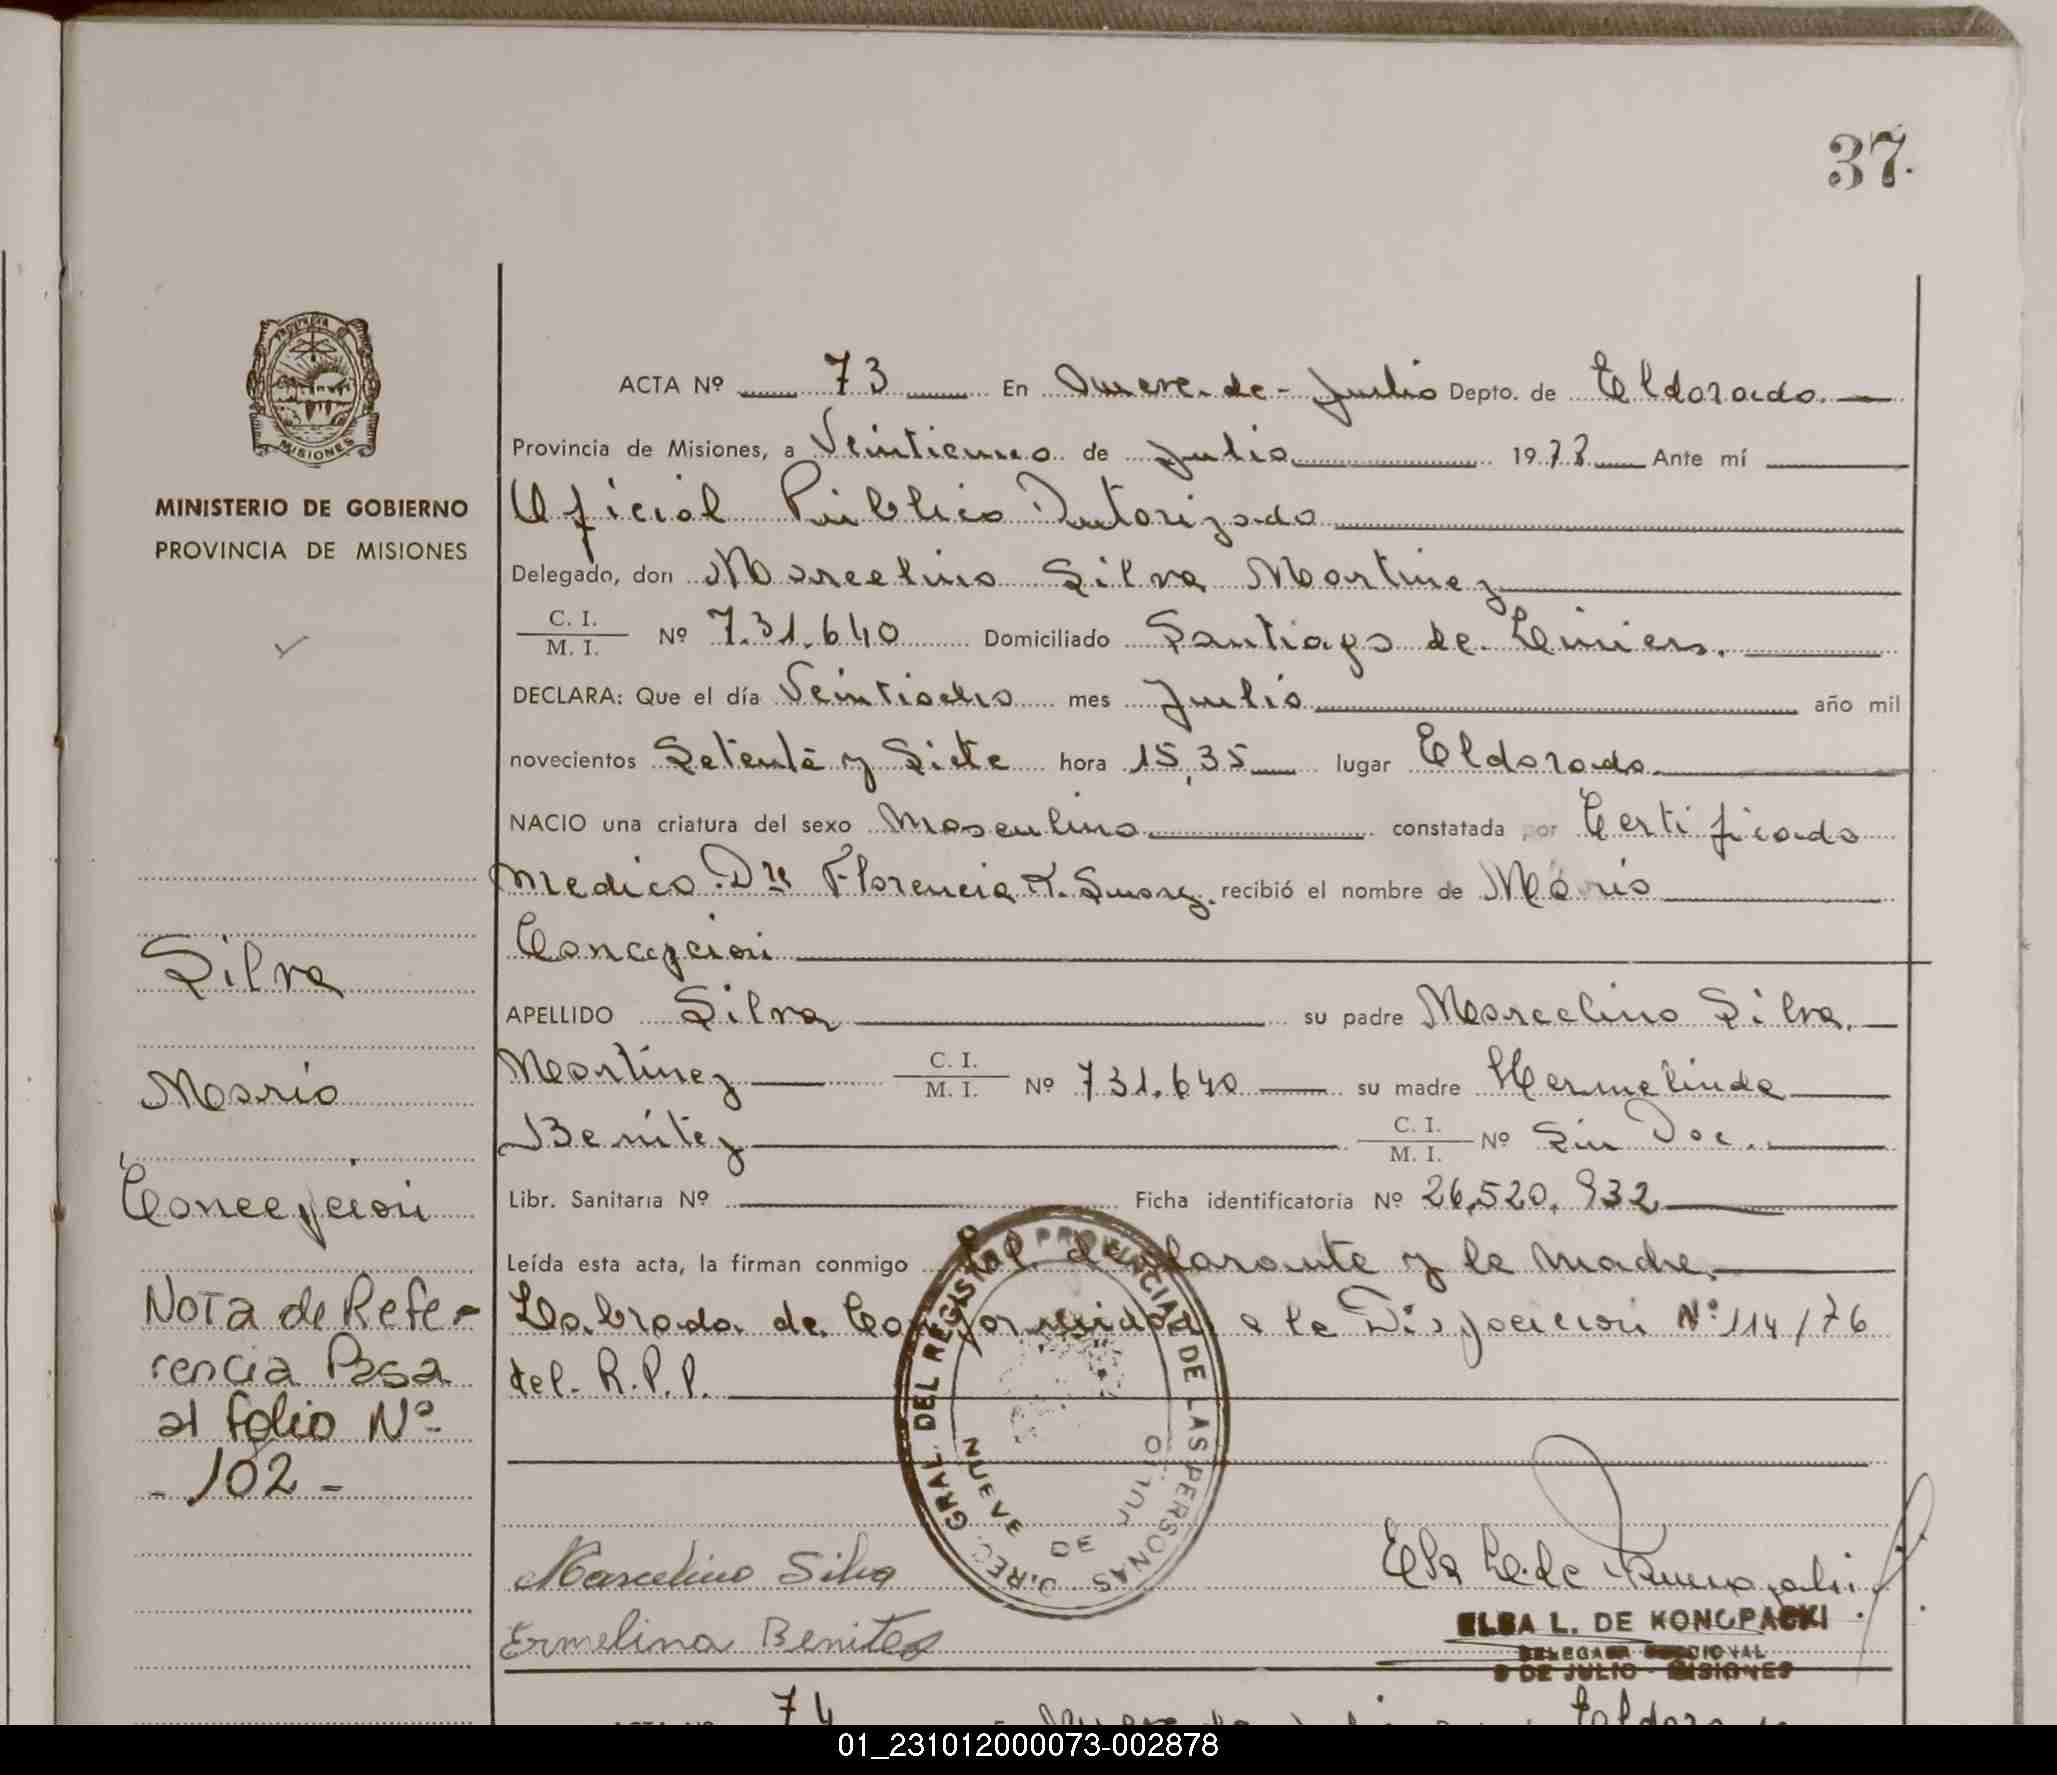 37.
PROVINCIA DE
MISIONES
MINISTERIO DE GOBIERNO
PROVINCIA DE MISIONES
Silva
Mario
Concepcion
Nota de Refe-
rencia Pasa
al folio Nº
- 102 -
ACTA Nº 73 En Nueve de Julio Depto. de Eldorado.
Provincia de Misiones, a de Julio 1978 Ante mí
Oficial Público Autorizado
Delegado, don Marcelino Silva Martinez
C. I.
M. I. Nº 7.31.640 Domiciliado Santiago de Liniers.
DECLARA: Que el día Veintiocho mes Julio año mil
novecientos Setenta y Siete hora 15,35 lugar Eldorado
NACIO una criatura del sexo Masculino constatada por Certificado
Medico Dra Florencia K. Suarez. recibió el nombre de Mario
Concepcion
APELLIDO Silva su padre Marcelino Silva.
Martinez C. I.
M. I. Nº 731.640 su madre Hermelinda
Benitez C. I.
M. I. Nº Sin Doc.
Libr. Sanitaria Nº Ficha identificatoria Nº 26.520.932
Leída esta acta, la firman conmigo el declarante y la madre.
Labrada de Conformidad a la Disposicion Nº 114/76
del R.P.P.
DIREC. GRAL. DEL REGISTRO PROVINCIAL DE LAS PERSONAS
NUEVE DE JULIO
Marcelino Silva
Elba L. de Konopacki
Ermelina Benites
ELBA L. DE KONOPACKI
DELEGADA SECCIONAL
9 DE JULIO - MISIONES
ACTA Nº 74 En Nueve de Julio Depto. de Eldorado
01_231012000073-002878